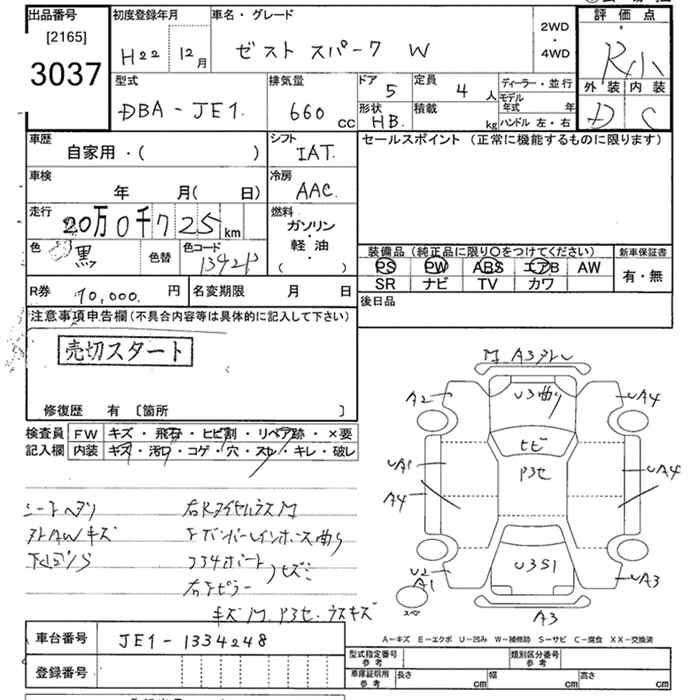 出品番号 初度登録年月 車名・グレード 評価点
[2165]
3037
H22 12月 ゼスト スパーク W 2WD・4WD R小
型式 排気量 ドア 定員 ディーラー・並行 外装 内装
DBA-JE1. 660cc 5 4人 モデル年式 年 D C
形状 HB. 積載 kg ハンドル 左・右
車歴 シフト セールスポイント (正常に機能するものに限ります)
自家用・( ) IAT.
車検 冷房
年 月( 日) AAC.
走行 燃料
20万0千725km ガソリン・軽油・( )
色 黒 色替 色コード
装備品 (純正品に限り○をつけてください) 新車保証書
PS PW ABS エアB AW 有・無
SR ナビ TV カワ
R券 10,000.円 名変期限 月 日 後日品
注意事項申告欄(不具合内容等は具体的に記入して下さい)
売切スタート
修復歴 有 〔箇所 〕
検査員 FW キズ・飛石・ヒビ割・リペア跡・×要
記入欄 内装 キズ・汚れ・コゲ・穴・スレ・キレ・破レ
M A3
A2 U3曲り UA4
ヒビ
P3セ
UA1 UA4
A4
U3S1
U2 A1 UA3
スペア A3
シートヘタリ
AWキズ
キズ M. P3セ. ラスキズ
A-キズ E-エクボ U-凹み W-補修跡 S-サビ C-腐食 XX-交換済
車台番号 JE1-1334248
型式指定番号 参考 類別区分番号 参考
登録番号 車庫証明用 参考 長さ cm 幅 cm 高さ cm